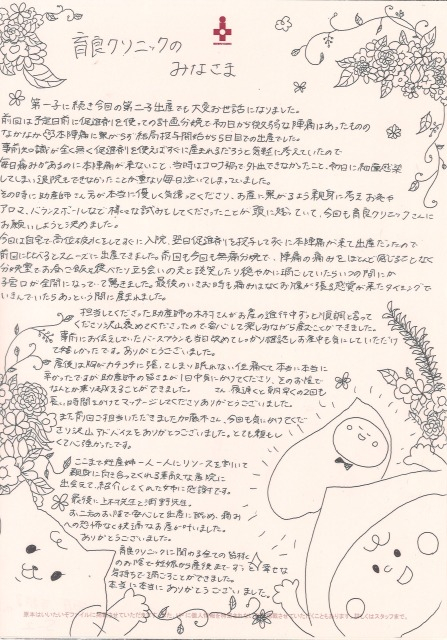 育良クリニックの
みなさま
第一子に続き今回の第二子出産でも大変お世話になりました。
前回は予定日前に促進剤を使っての計画分娩で初日から微弱な陣痛はあったものの
なかなか本陣痛に繋がらず結局投与開始から5日目での出産でした。
事前知識が全く無く促進剤を使えばすぐに産まれるだろうと気軽に考えていたので
毎日痛みがあるのに本陣痛が来ないこと、当時はコロナ禍で外出できなかったこと、和日に細菌感染
してしまい退院もできなかったことが重なり毎日泣いてしまっていました。
その時に助産師さん方が本当に優しく気遣ってくださり、お産に繋がるよう親身に考えお灸や
アロマ、バランスボールなど様々な試みをしてくださったことが頭に残っていて、今回も育良クリニックさんに
お願いしようと決めました。
今回は自宅で高位破水をしてすぐに入院、翌日促進剤を投与してすぐに本陣痛が来て出産だったので
前回に比べるとスムーズに出産できました。前回も今回も無痛分娩で、陣痛の痛みをほとんど感じることなく
分娩室でお昼ご飯を食べたり立ち会いの夫と談笑したり穏やかに過ごしていたらいつの間にか
子宮口が全開になっていて驚きました。最後のいきむ時も痛みはなくお腹が張る感覚が来たタイミングで
いきんでいたらあっという間に産まれました。
担当してくださった助産師の木村さんがお産の進行中ずっと順調と言って
くださり沢山褒めてくださったので安心して楽しみながら産むことができました。
事前にお伝えしていたバースプランも当日改めてしっかり確認しお産中も気にしていただけ
て嬉しかったです。ありがとうございました。
産後は胸がカチカチに張ってしまい眠れない位痛くて本当に本当に
辛かったですが助産師の皆さまが1日中気にかけてくださり、そのお陰で
なんとか乗り越えることができました。 さん 夜遅くと朝早くの2回も
長い時間をかけてマッサージしてくださりありがとうございました。
また前回ご担当いただきました加藤さん、今回も気にかけてくだ
さり沢山アドバイスをありがとうございました。とても頼もし
くて心強かったです。
ここまで妊産婦一人一人にリソースを割いて
親身に向き合ってくれる素敵な病院に
出会えて、紹介してくれた姉に感謝です。
最後に、上井先生と浦野先生。
お二方のお陰で安心して出産に臨め、痛み
への恐怖なく快適なお産が叶いました。
ありがとうございました。
育良クリニックに関わる全ての皆様
のお陰で妊娠から産後までずっと幸せな
気持ちで過ごすことができました。
本当に本当にありがとうございました。